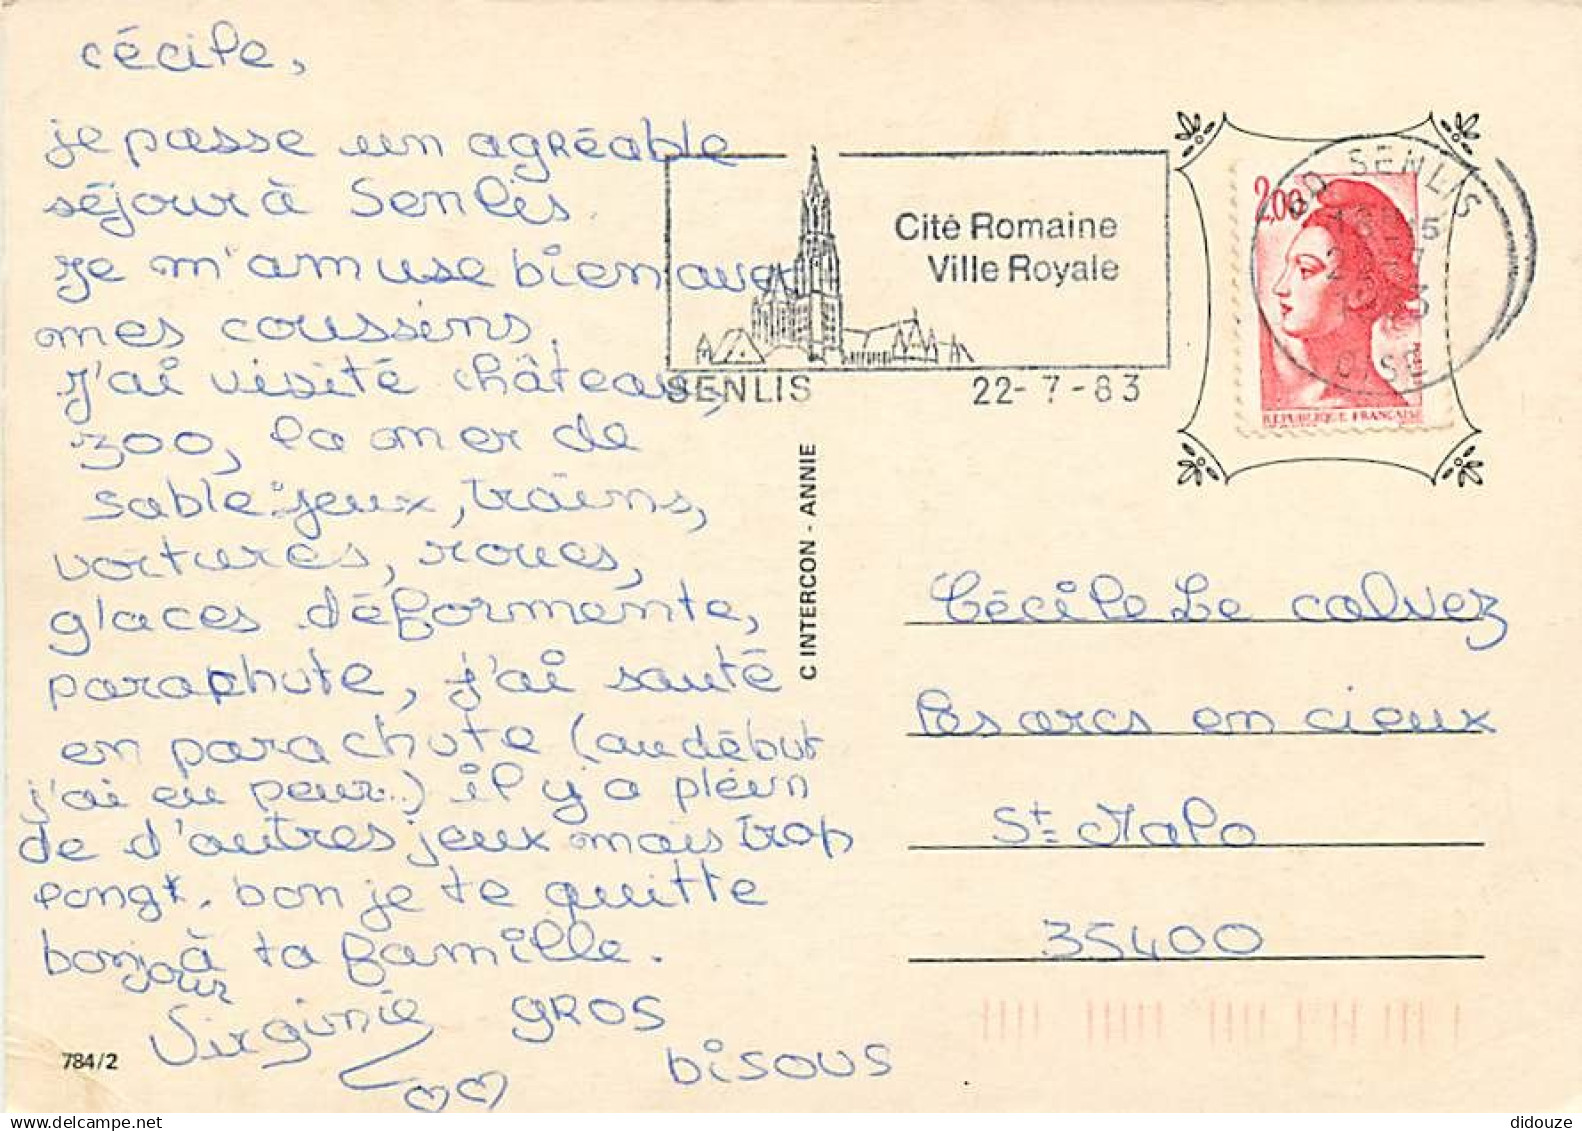 Cécile,
je passe un agréable
séjour à Senlis.
Je m'amuse bien avec
mes coussins,
J'ai visité château,
zoo, la mer de
sable : jeux, trains,
voitures, roues,
glaces déformente,
parachute, j'ai sauté
en parachute (au début
j'ai eu peur..) il y a plein
de d'autres jeux mais trop
long. bon je te quitte
bonjour à ta famille.
Virginie GROS
bisous
784/2
C INTERCON - ANNIE
Cité Romaine
Ville Royale
SENLIS 22-7-83
60 SENLIS
OISE
2,00
REPUBLIQUE FRANÇAISE
Cécile Le Calvez
les arcs en cieux
St= Malo
35400
didouze